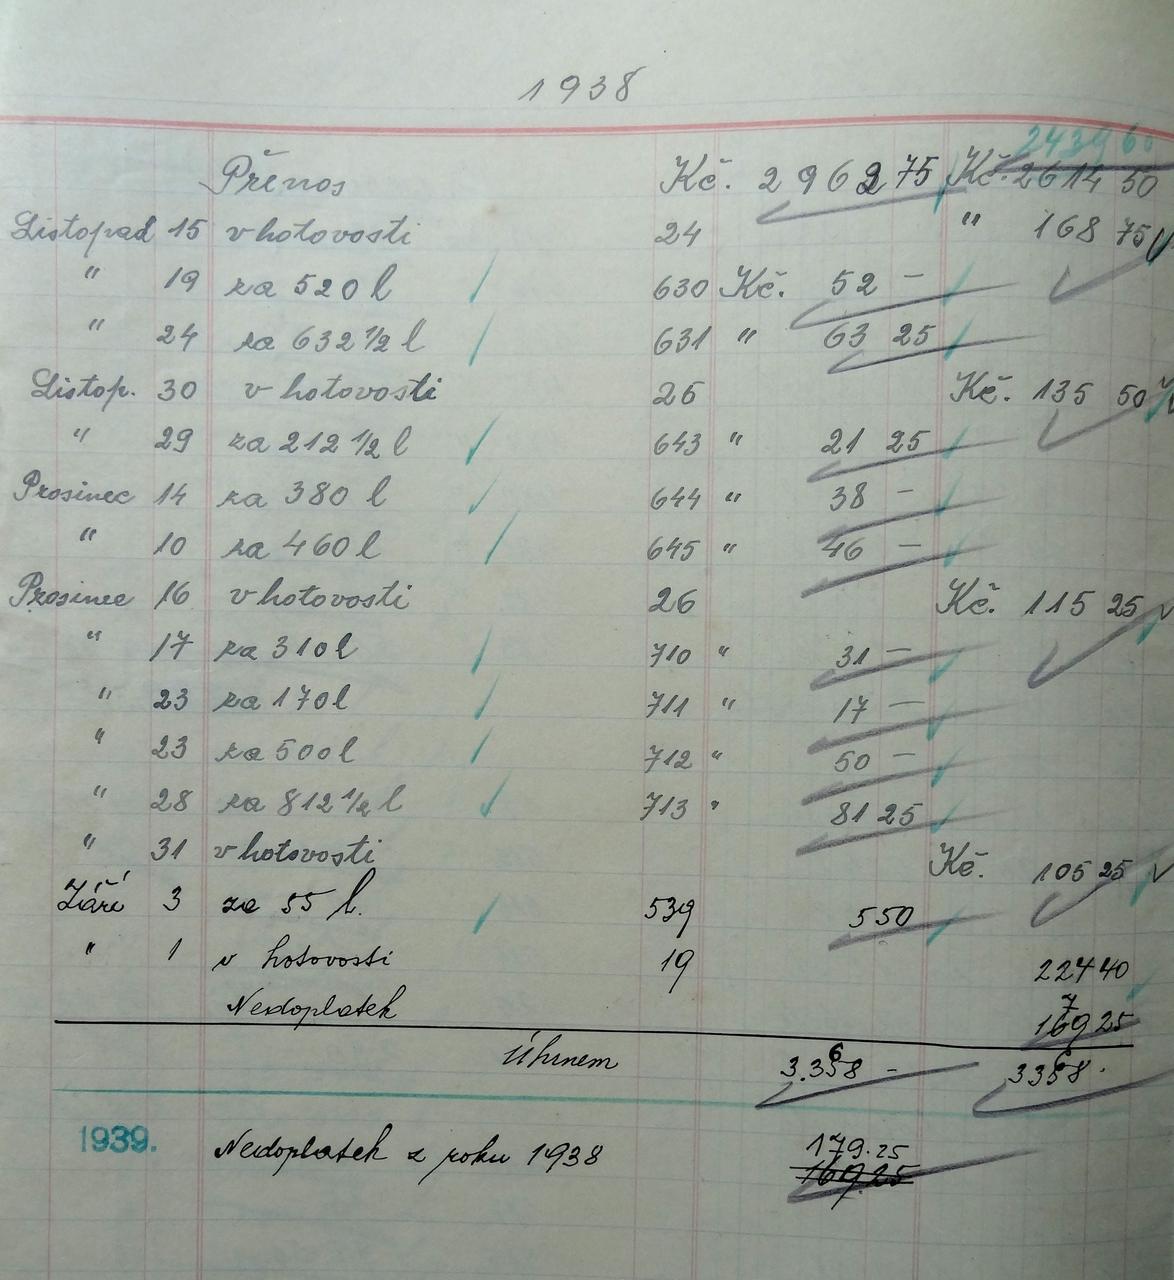 1938
2439 60
Přenos Kč. 2962 75 Kč. 2614 50
Listopad 15 v hotovosti 24 " 168 75
" 19 za 520 l 630 Kč. 52 –
" 24 za 632 1/2 l 631 " 63 25
Listop. 30 v hotovosti 26 Kč. 135 50
" 29 za 212 1/2 l 643 " 21 25
Prosinec 14 za 380 l 644 " 38 –
" 10 za 460 l 645 " 46 –
Prosinec 16 v hotovosti 26 Kč. 115 25
" 17 za 310 l 710 " 31 –
" 23 za 170 l 711 " 17 –
" 23 za 500 l 712 " 50 –
" 28 za 812 1/2 l 713 " 81 25
" 31 v hotovosti Kč. 105 25
Září 3 za 55 l. 539 5 50
" 1 v hotovosti 19 224 40
7
Nedoplatek 169 25
6 6
Úhrnem 3.358 – 3358 .
1939. Nedoplatek z roku 1938 179.25
169.25